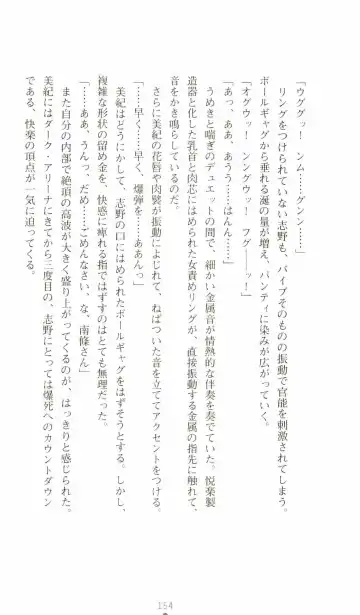 「ウググッ！　ンム……グンン……」
　リングをつけられていない志野も、バイブそのものの振動で官能を刺激されてしまう。
ボールギャグから垂れる涎の星が増え、パンティに染みが広がっていく。
「オグウッ！　ンングウッ！　フグ――ッ！」
「あっ、ああ、あうう……はんん……」
　うめきと喘ぎのデュエットの間で、細かい金属音が情熱的な伴奏を奏でていた。悦楽製
造器と化した乳首と肉芯にはめられた女責めリングが、直接振動する金属の指先に触れて、
音をかき鳴らしているのだ。
　さらに美紀の花唇や肉襞が振動によじれて、ねばついた音を立ててアクセントをつける。
「……早く……早く、爆弾を……ああんっ」
　美紀はどうにかして、志野の口にはめられたボールギャグをはずそうとする。しかし、
複雑な形状の留め金を、快感に痺れる指ではずすのはとても無理だった。
「……ああ、うんっ、だめ……ごめんなさい、な、南條さん」
　また自分の内部で絶頂の高波が大きく盛り上がってくるのが、はっきりと感じられた。
美紀にはダーク・アリーナにきてから三度目の、志野にとっては爆死へのカウントダウン
である、快楽の頂点が一気に迫ってくる。
154